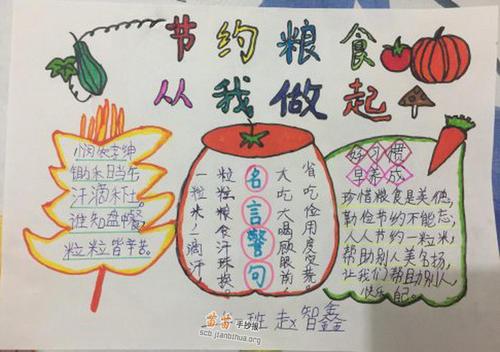 节约粮食
从我做起
悯农李绅
锄禾日当午
汗滴禾下土。
谁知盘中餐,
粒粒皆辛苦。
一粒米,一滴汗,
粒粒粮食汗珠换。
名言警句
大吃大喝顾眼前
省吃俭用度灾荒。
好习惯
早养成
珍惜粮食是美德,
勤俭节约不能忘,
人人节约一粒米,
帮助别人美名扬,
让我们帮助别人,
快乐自己。
班 赵智鑫
手抄报
scb.jianbihua.org